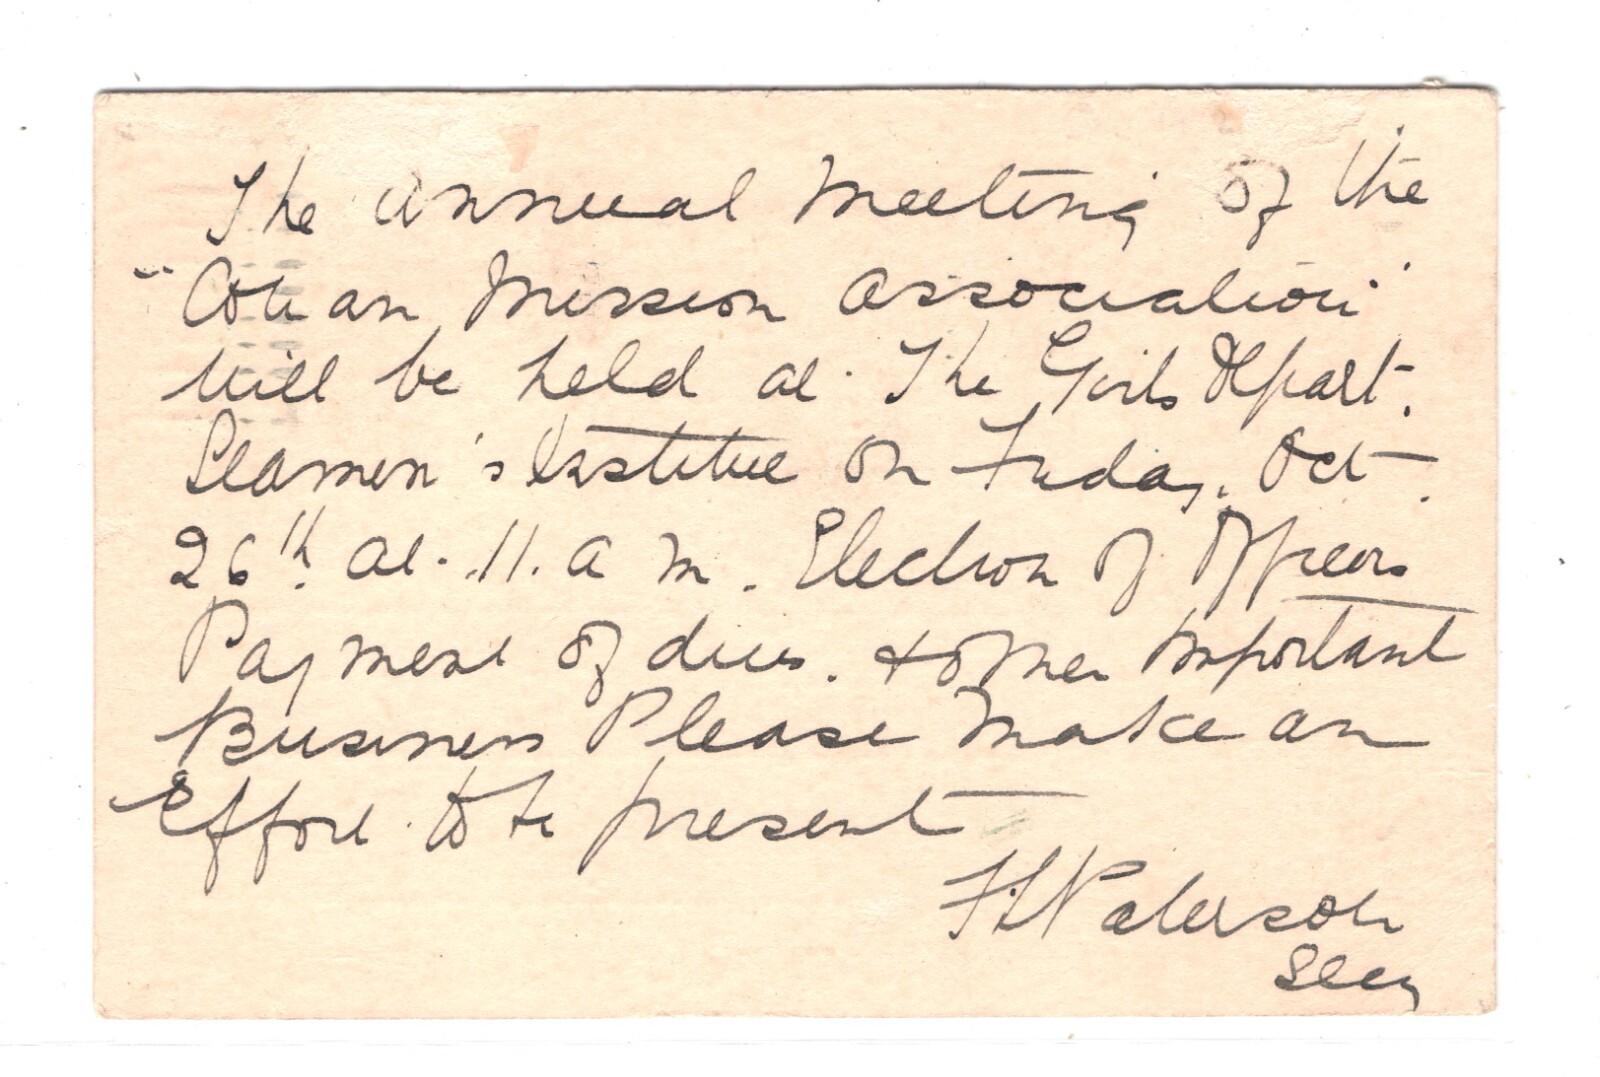 The Annual Meeting of the
Mission Association"
will be held at The Girls Depart.
Seamen's Institute on Friday. Oct.
26th. at 11. a m. Election of Officers
Payment of dues. & other Important
Business Please make an
Effort to be present
Paterson
Secy